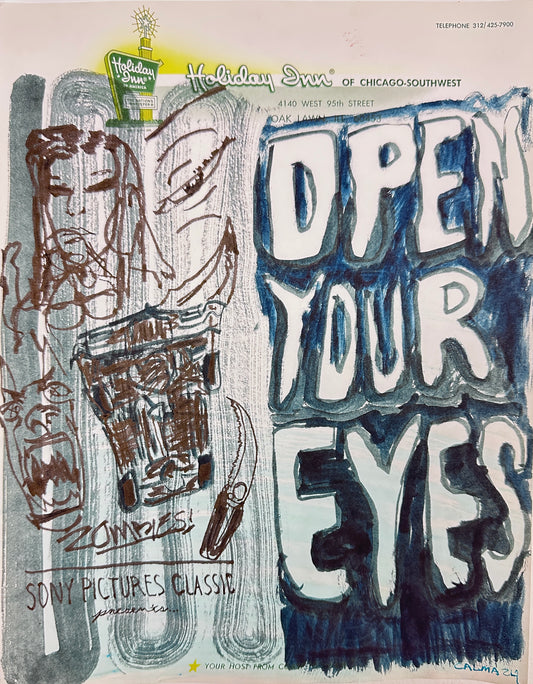 TELEPHONE 312/425-7900
Holiday Inn
OF AMERICA
Holiday Inn® OF CHICAGO-SOUTHWEST
4140 WEST 95th STREET
OAK LAWN
OPEN
YOUR
EYES
ZOMBIES!
SONY PICTURES CLASSIC
presents...
YOUR HOST FROM
CALMA 24